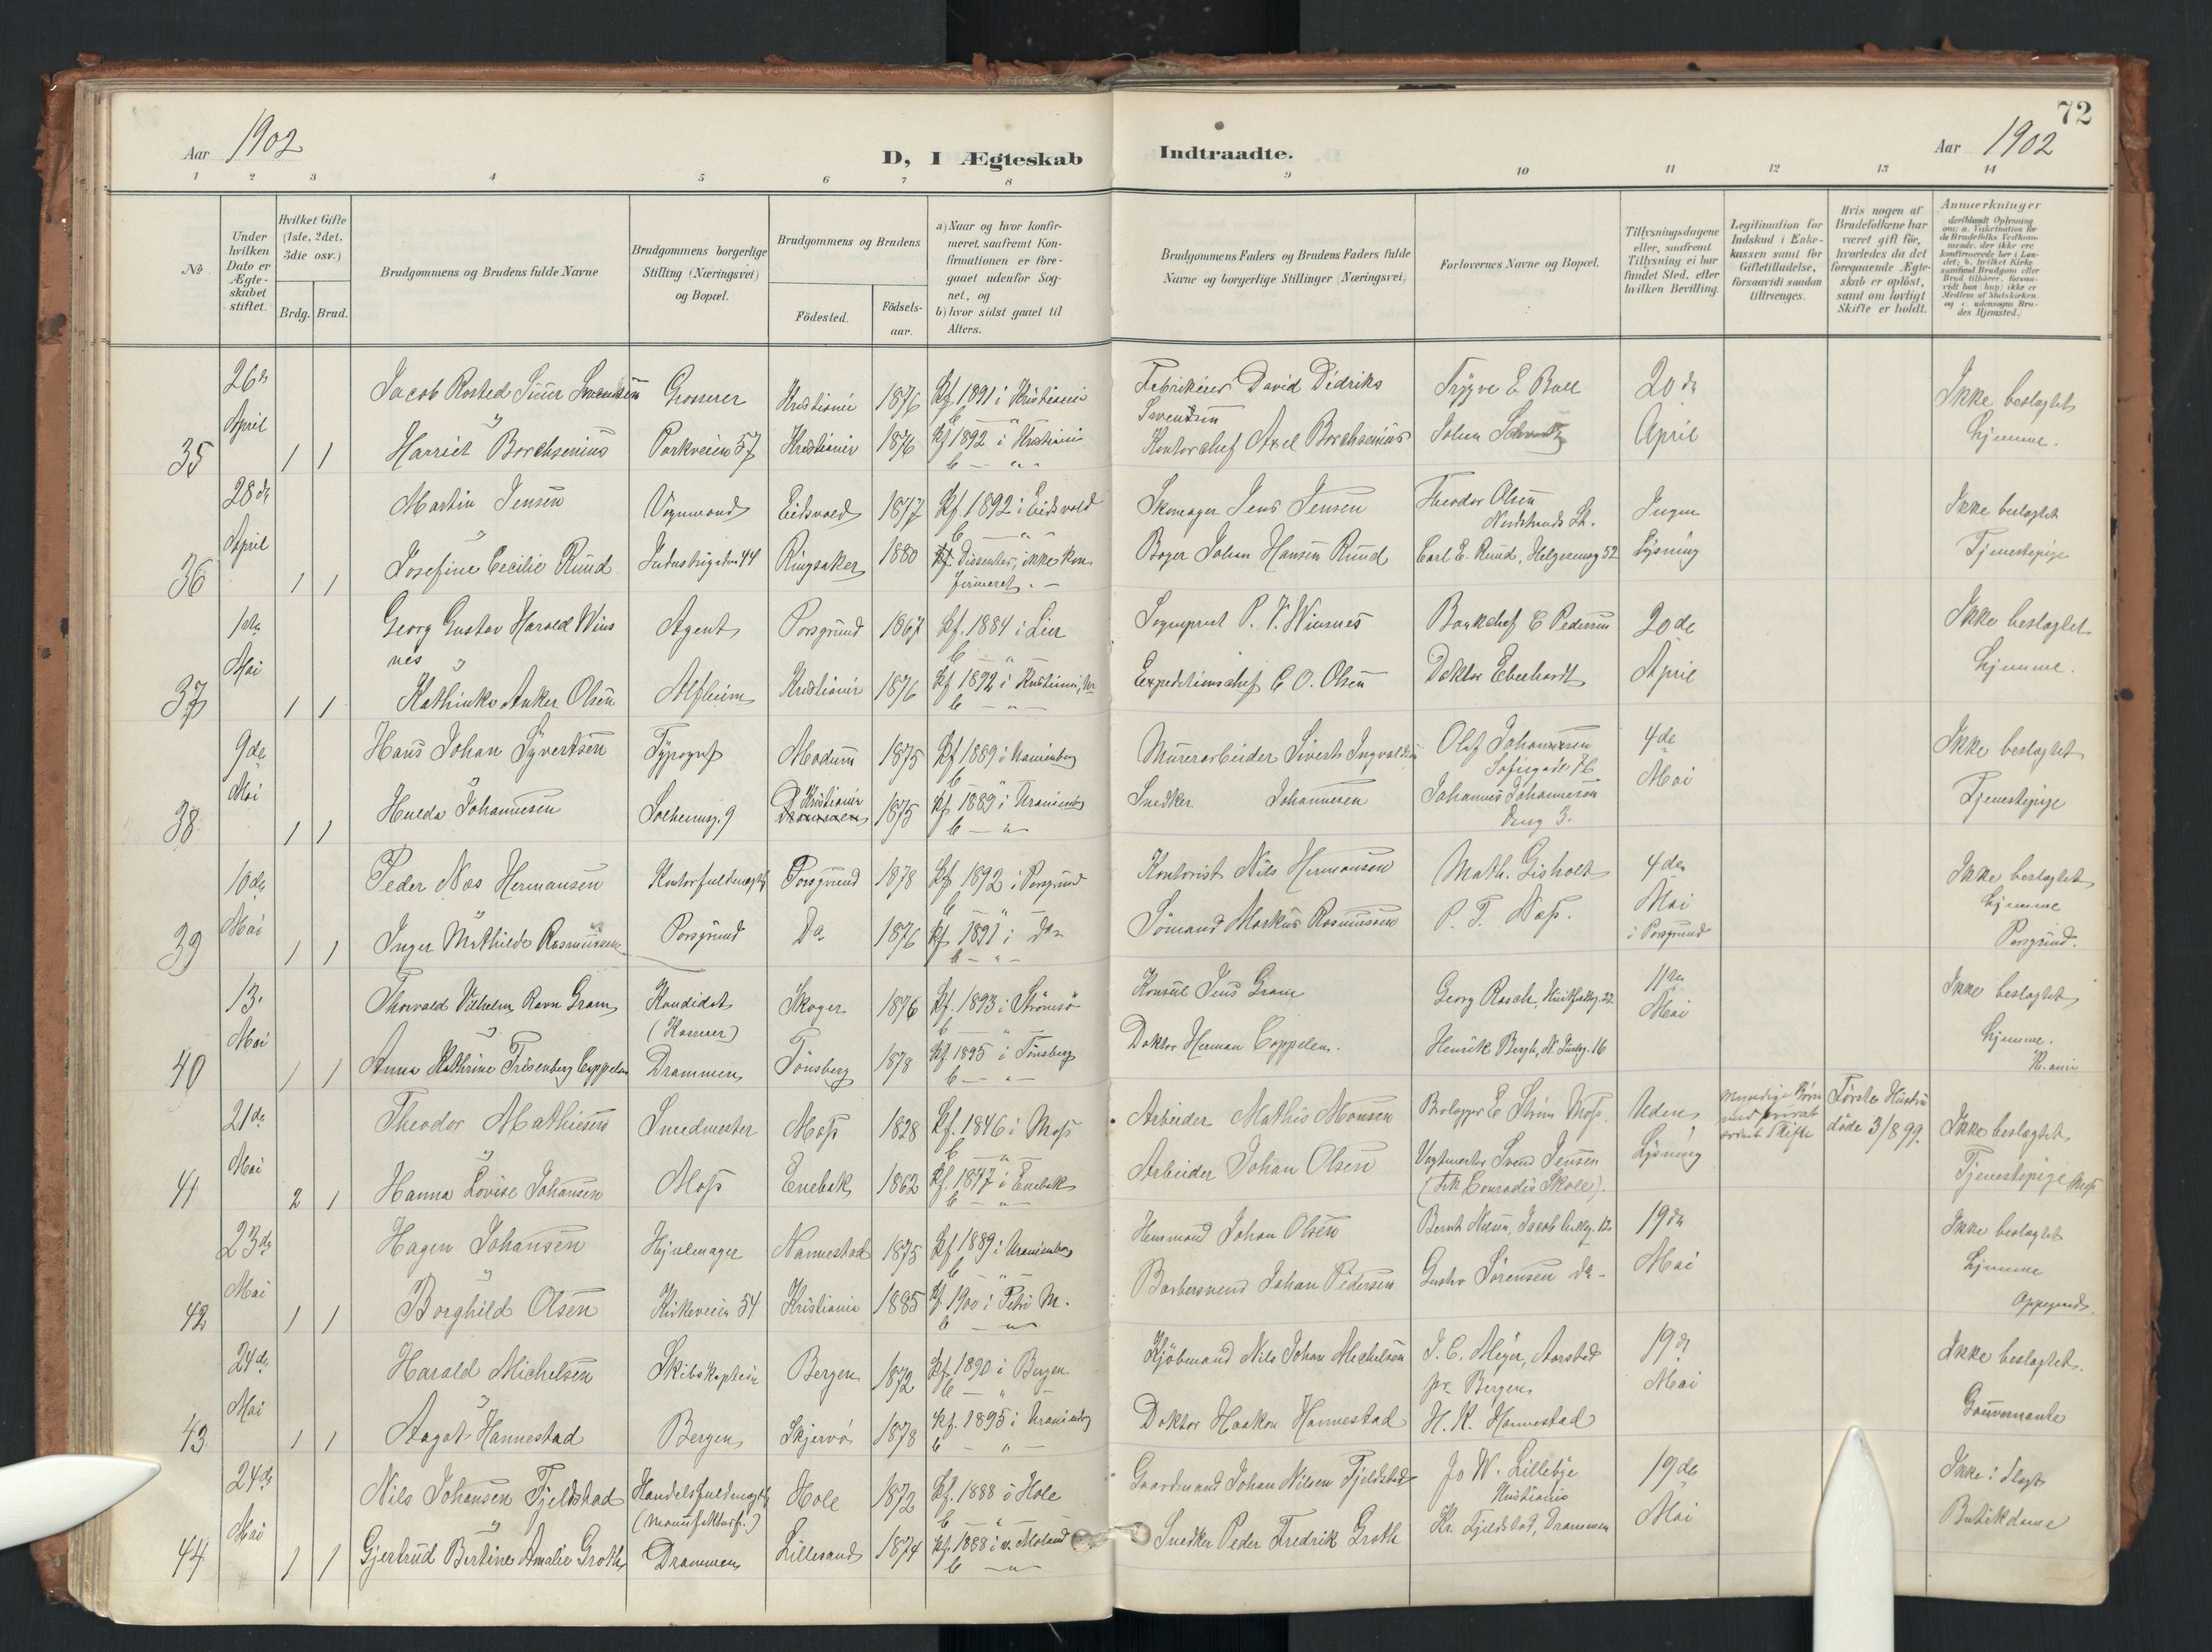 72
Aar 1902
D, I Ægteskab Indtraadte.
Aar 1902
1 2 3 4 5 6 7 8 9 10 11 12 13 14
No
Under hvilken Dato er Ægteskabet stiftet.
Hvilket Gifte (1ste, 2det, 3die osv.)
Brdg. Brud.
Brudgommens og Brudens fulde Navne
Brudgommens borgerlige Stilling (Næringsvei) og Bopæl.
Brudgommens og Brudens
Födested.
Födselsaar.
a) Naar og hvor konfirmeret, saafremt Konfirmationen er foregaaet udenfor Sognet, og
b) hvor sidst gaaet til Alters.
Brudgommens Faders og Brudens Faders fulde Navne og borgerlige Stillinger (Næringsvei)
Forlovernes Navne og Bopæl.
Tillysningsdagene eller, saafremt Tillysning ei har fundet Sted, efter hvilken Bevilling.
Legitimation for Indskud i Enkekassen samt for Giftetilladelse, forsaavidt saadan tiltrænges.
Hvis nogen af Brudefolkene har været gift før, hvorledes da det foregaaende Ægteskab er opløst, samt om lovligt Skifte er holdt.
Anmærkninger
35 26de April 1 1
Jacob Rosted Suur Svendsen Grosserer Kristiania 1876 Kf. 1891 i Kristiania
Fabrikeier David Didriks Svendsen Trygve E Bull 20de April Ikke beslægtet
Harriet Borchsenius Parkveien 57 Kristiania 1876 Kf 1892 i Kristiania
Kontorchef Axel Borchsenius Johan Hjemme.
36 28de April 1 1
Martin Jensen Vognmand Eidsvold 1877 Kf. 1892 i Eidsvold
Skomager Jens Jensen Theodor Olsen Ingen Lysning Ikke beslægtet
Josefine Cecilie Ruud Industrigaden 44 Ringsaker 1880 Dissenter, ikke konfirmeret.
Bager Johan Hansen Ruud Carl E. Ruud, Helgesensg 52 Tjenestepige
37 1ste Mai 1 1
Georg Gustav Harald Wiesnes Agent Porsgrund 1867 Kf. 1884 i Lier
Sogneprest P. V. Wiesnes Bankchef E Pedersen 20de April Ikke beslægtet
Kathinka Anker Olsen Alfheim Kristiania 1876 Kf 1892 i Kristiania
Expeditionschef C. O. Olsen Doktor Eberhardt Hjemme.
38 9de Mai 1 1
Hans Johan Syvertsen Typograf Modum 1875 Kf 1889 i Uranienborg
Murerarbeider Sivert Ingvaldsen Olaf Johannesen Sofiegade 4de Mai Ikke beslægtet
Hulda Johannesen Solheimsg. 9 Kristiania 1875 Kf 1889 i Uranienborg
Snedker Johannesen Johannes Johannesen 3. Tjenestepige
39 10de Mai 1 1
Peder Næs Hermansen Kontorfuldmægtig Porsgrund 1878 Kf 1892 i Porsgrund
Kontorist Nils Hermansen Math. Gisholt 4de Mai i Porsgrund Ikke beslægtet
Inger Mathilde Rasmussen Porsgrund Do 1876 Kf 1891 i do
Sömand Markus Rasmussen P. T. Næss. Hjemme Porsgrund.
40 13. Mai 1 1
Thorvald Vilhelm Ravn Gram Kandidat (Kasserer) Skoger 1876 Kf. 1893 i Strömsö
Konsul Jens Gram Georg Rasch, 11te Mai Ikke beslægtet
Anna Kathrine Frisenberg Coppelen Drammen Tönsberg 1878 Kf 1895 i Tönsberg
Doktor Herman Coppelen. Henrik Bergh, 16 Hjemme.
41 21de Mai 2 1
Theodor Mathiesen Smedmester Moss 1828 Kf. 1846 i Moss
Arbeider Mathis Monsen Ström Moss Uden Lysning
Myndige Börn med privat ordnet Skifte
Förste Hustru döde 3/8 99. Ikke beslægtet
Hanna Lovise Johansen Moss Enebak 1862 Kf. 1877 i Enebak
Arbeider Johan Olsen Vagtmester Svend Jensen (Frk Conradis Skole). Tjenestepige Moss
42 23de Mai 1 1
Hagen Johansen Hjulmager Nannestad 1875 Kf 1889 i Uranienborg
Husmand Johan Olsen Bernt Nilsen, Jacob 12 19de Mai Ikke beslægtet
Borghild Olsen Kirkeveien 54 Kristiania 1885 Kf 1900 i Petri M.
Barbersvend Johan Pedersen Gustav Sörensen do Hjemme Oppegaard
43 24de Mai 1 1
Harald Michelsen Skibskaptein Bergen 1872 Kf. 1890 i Bergen
Kjöbmand Nils Johan Michelsen J. C. Meyer, Aarstad pr Bergen 19de Mai Ikke beslægtet.
Aagot Hannestad Bergen Skjervö 1878 Kf. 1895 i Uranienborg
Doktor Haakon Hannestad H. K. Hannestad Gouvernante
44 24de Mai 1 1
Nils Johansen Fjeldstad Handelsfuldmægtig (Manufakturf.) Hole 1872 Kf. 1888 i Hole
Gaardmand Johan Nilsen Fjeldstad Jo W. Lillebye Kristiania 19de Mai Ikke i Slægt
Gjertrud Bertine Amalie Groth Drammen Lillesand 1874 Kf. 1888 i v. Moland
Snedker Peder Fredrik Groth Kr. Fjeldstad, Drammen Butikdame